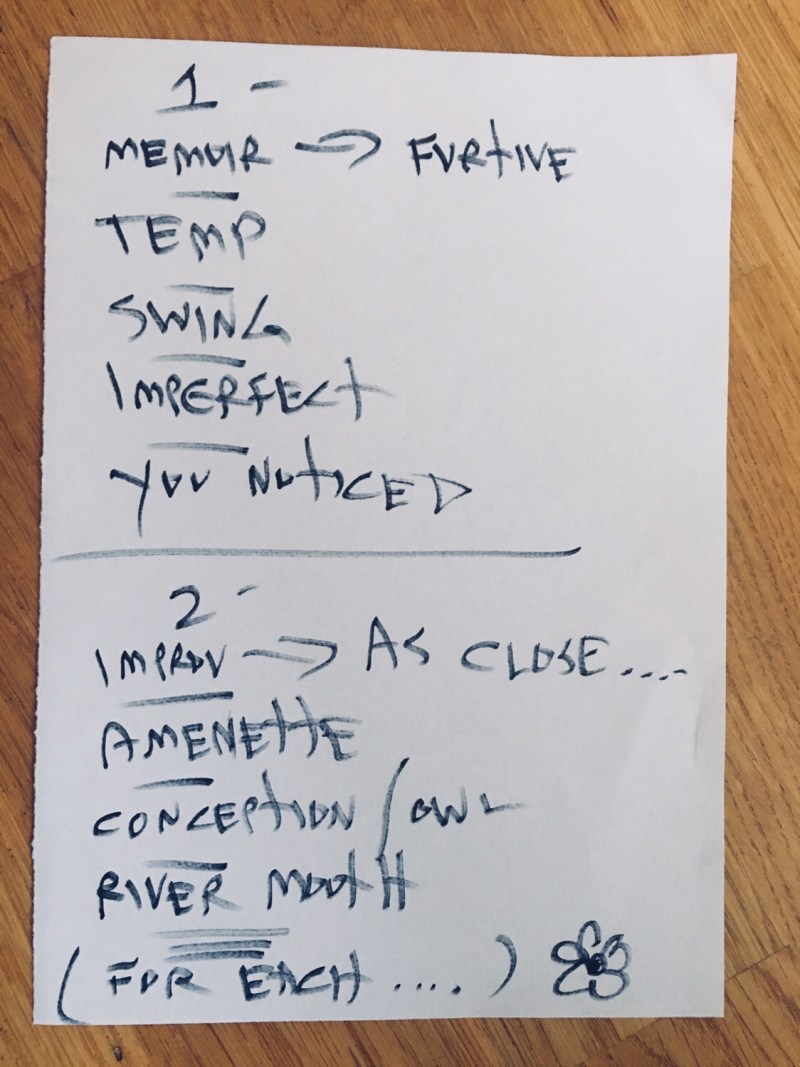 1 -
MEMOIR → FURTIVE
TEMP
SWING
IMPERFECT
YOU NOTICED
2 -
IMPROV → AS CLOSE....
AMENETTE
CONCEPTION / OWL
RIVER MOUTH
(FOR EACH ....)